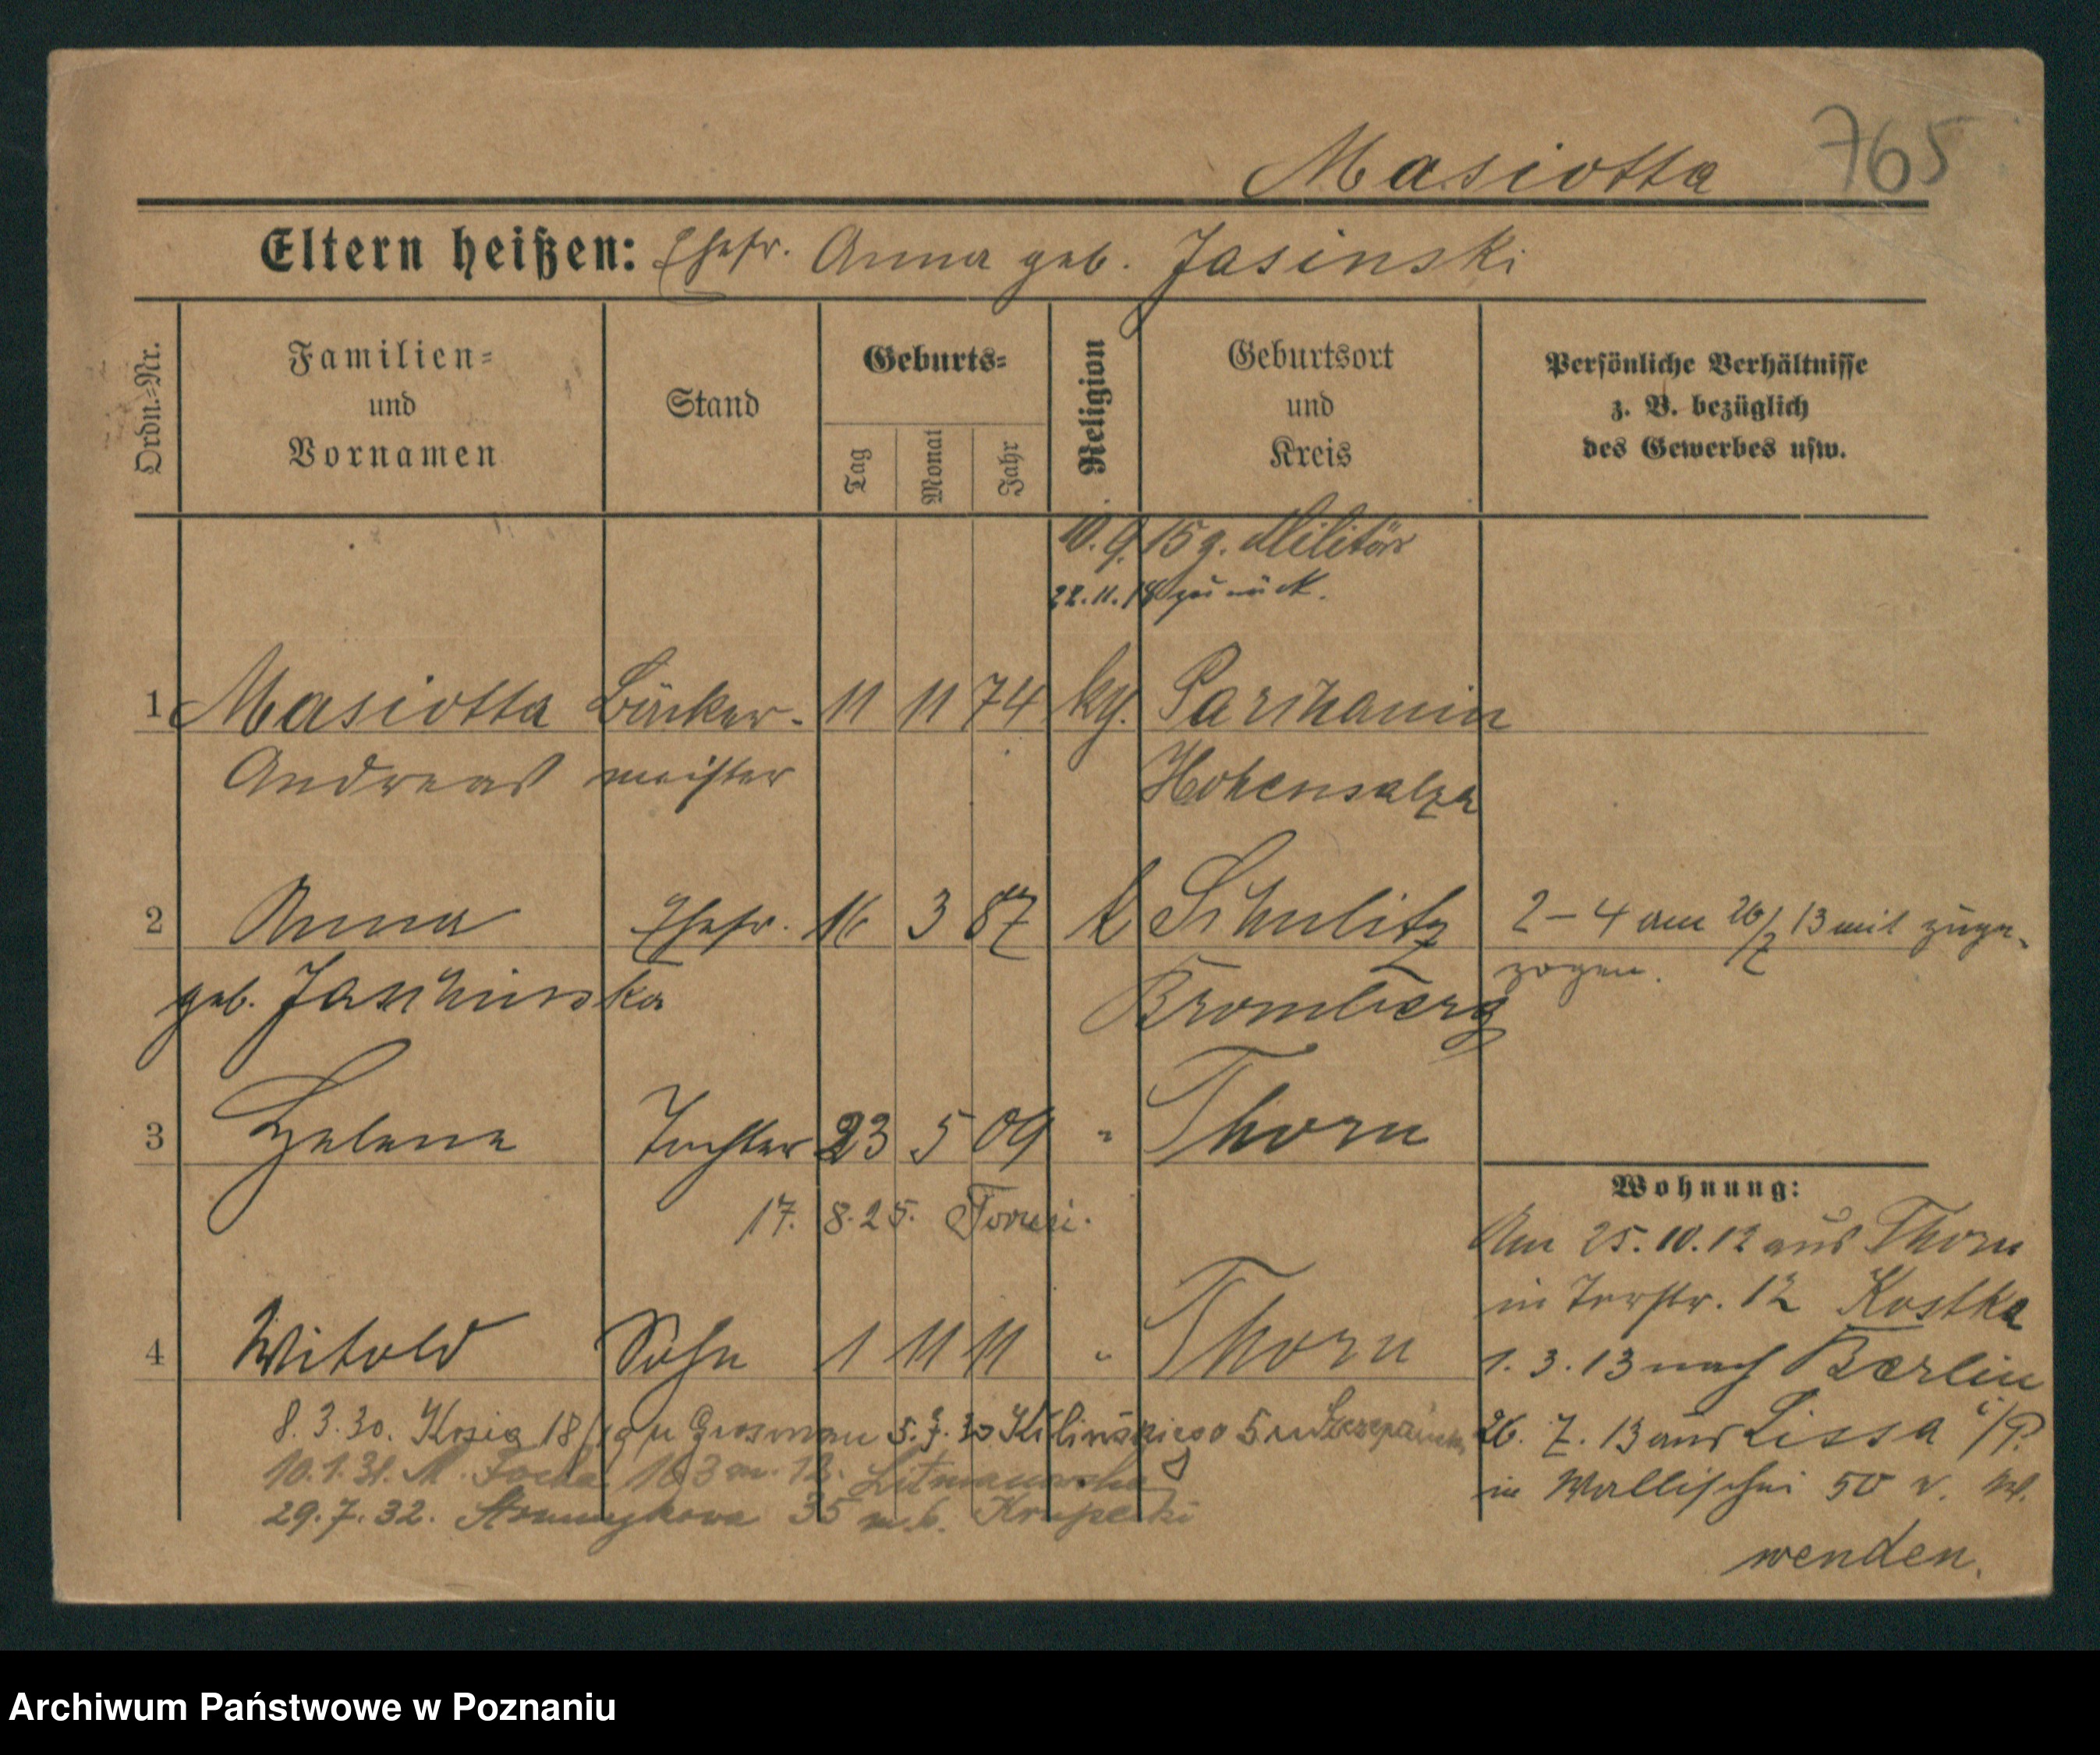 Masiotta 765
Eltern heißen: Ehefr. Anna geb. Jasinski
Ordn.-Nr.
Familien-
und
Vornamen
Stand
Geburts-
Tag
Monat
Jahr
Religion
Geburtsort
und
Kreis
Persönliche Verhältnisse
z. B. bezüglich
des Gewerbes usw.
10.9.15 z. Militär
22.11.18 zurück.
1 Masiotta Bäcker- 11 11 74 kg. Parchanin
Andreas meister Hohensalza
2 Anna Ehefr. 16 3 87 k Schulitz 2–4 am 26/7 13 mit zuge-
geb. Jaschinska Bromberg zogen.
3 Helene Tochter 23 5 09 " Thorn
17. 8.25.
Wohnung:
Am 25.10.12 aus Thorn
in 12 Kostka
4 Witold Sohn 1 11 11 " Thorn
1.3.13 nach Berlin
8.3.30. Kosia 18 u Grosman 5.7.30 Kilinskiego 5 u
26.7.13 aus Lissa i/P.
10.1.31. M. Focha 163 m. 12.
in Wallischei 50 v. W.
29.7.32. 35 m.6. Krupecki
wenden.
Archiwum Państwowe w Poznaniu